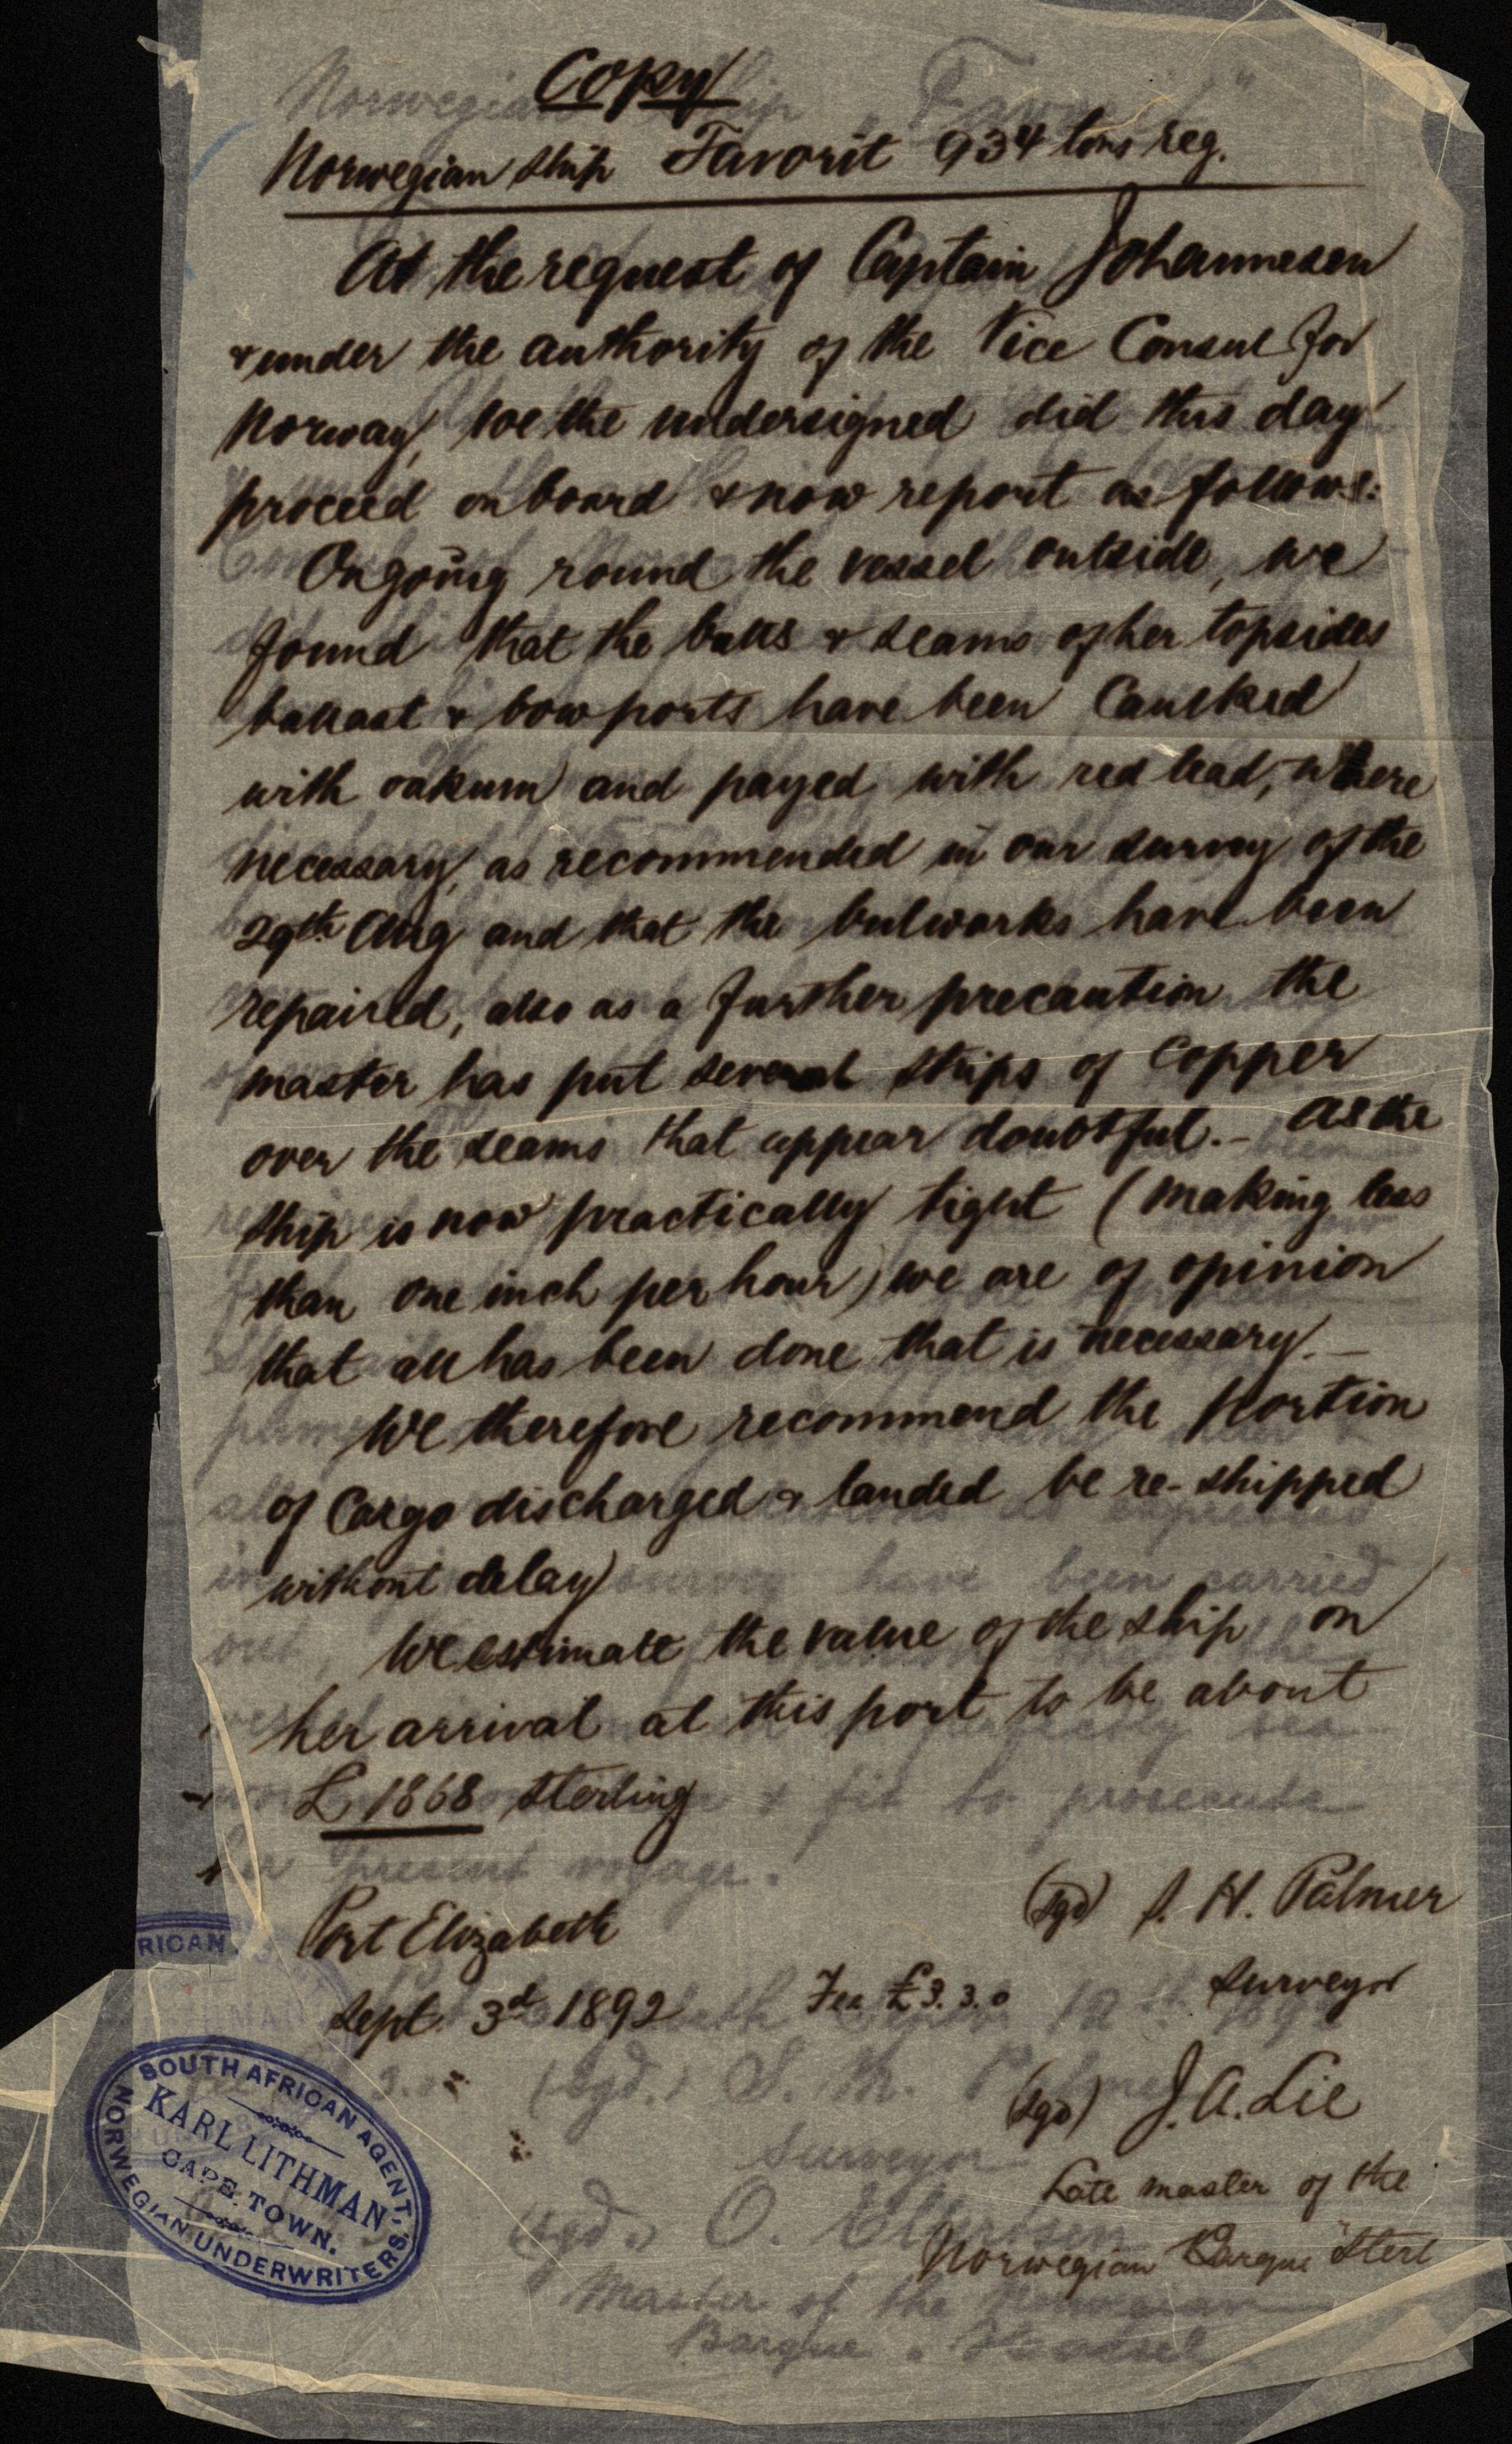 Copy
Norwegian ship Favorit 934 tons reg.
At the request of Captain Johannesen
& under the authority of the Vice Consul for
Norway, we the undersigned did this day
proceed on board & now report as follows:
On going round the vessel outside, we
found that the butts & seams of her topsides
ballast & bow ports have been Caulked
with oakum and payed with red lead, where
necessary, as recommended in our survey of the
29th Aug and that the bulwarks have been
repaired, also as a further precaution the
master has put several strips of Copper
over the seams that appear doubtful. - As the
ship is now practically tight (making less
than one inch per hour) we are of opinion
that all has been done that is necessary. -
We therefore recommend the portion
of Cargo discharged & landed be re-shipped
without delay
We estimate the value of the ship on
her arrival at this port to be about
£ 1868 Sterling
(sgd) J. H. Palmer
Port Elizabeth
Surveyor
Sept. 3d 1892 Fee £3.3.0
(sgd) J. A. Lie
Late master of the
Norwegian Barque
SOUTH AFRICAN AGENT.
KARL LITHMAN
CAPE TOWN.
NORWEGIAN UNDERWRITERS.